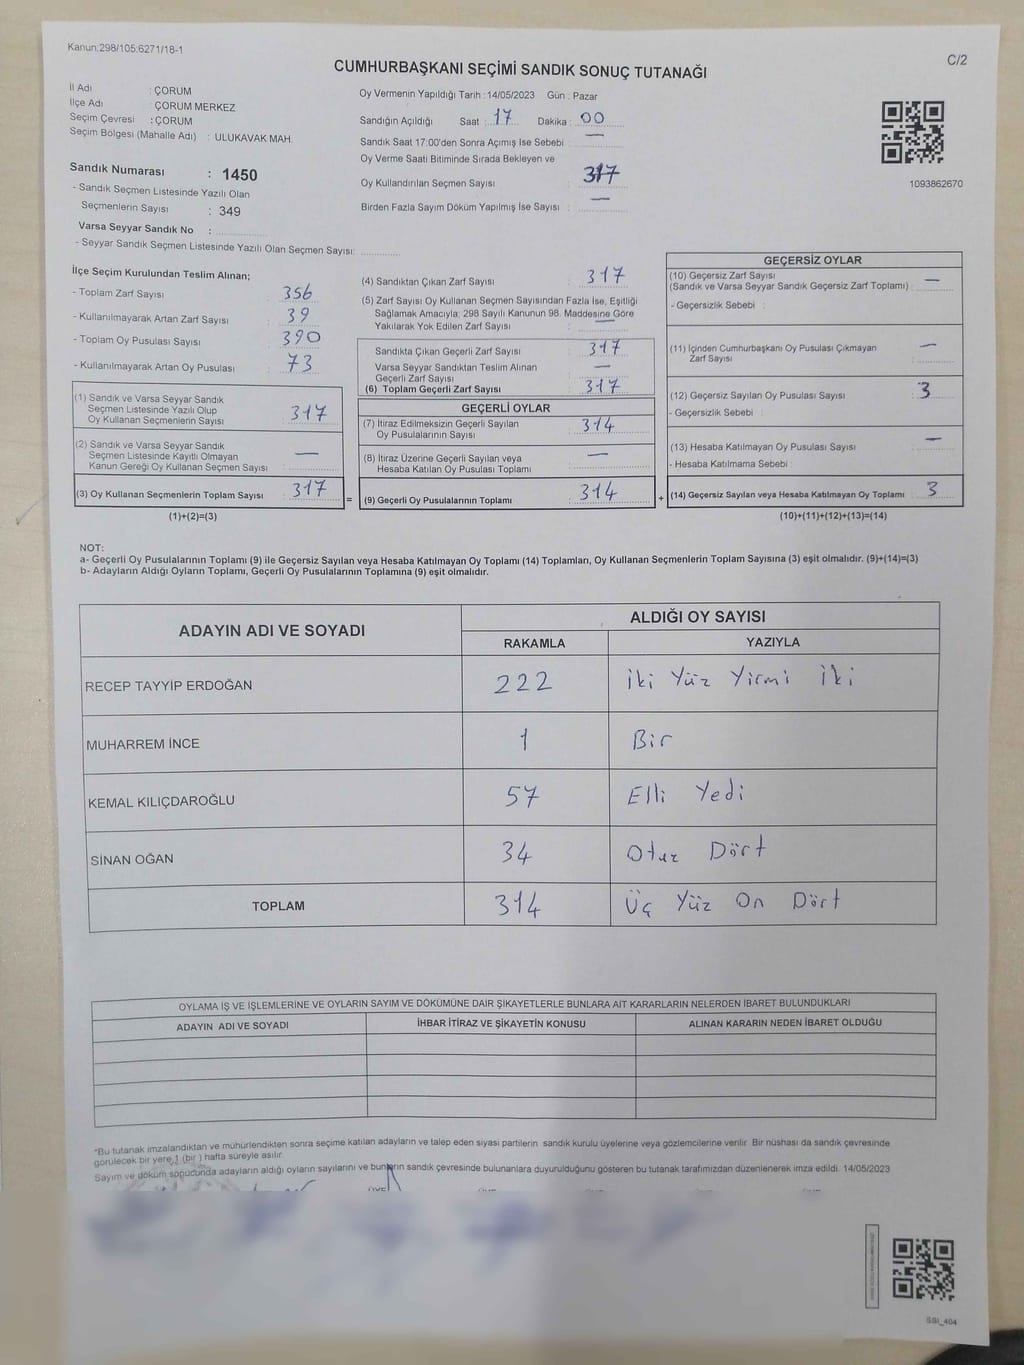 Kanun:298/105:6271/18-1
C/2
CUMHURBAŞKANI SEÇİMİ SANDIK SONUÇ TUTANAĞI
İl Adı : ÇORUM
İlçe Adı : ÇORUM MERKEZ
Seçim Çevresi : ÇORUM
Seçim Bölgesi (Mahalle Adı) : ULUKAVAK MAH.
Sandık Numarası : 1450
- Sandık Seçmen Listesinde Yazılı Olan
Seçmenlerin Sayısı : 349
Varsa Seyyar Sandık No :
- Seyyar Sandık Seçmen Listesinde Yazılı Olan Seçmen Sayısı:
Oy Vermenin Yapıldığı Tarih : 14/05/2023 Gün : Pazar
Sandığın Açıldığı Saat : 17 Dakika : 00
Sandık Saat 17:00'den Sonra Açımış İse Sebebi : —
Oy Verme Saati Bitiminde Sırada Bekleyen ve
Oy Kullandırılan Seçmen Sayısı : 317
Birden Fazla Sayım Döküm Yapılmış İse Sayısı : —
1093862670
İlçe Seçim Kurulundan Teslim Alınan;
- Toplam Zarf Sayısı : 356
- Kullanılmayarak Artan Zarf Sayısı : 39
- Toplam Oy Pusulası Sayısı : 390
- Kullanılmayarak Artan Oy Pusulası : 73
(1) Sandık ve Varsa Seyyar Sandık
Seçmen Listesinde Yazılı Olup
Oy Kullanan Seçmenlerin Sayısı : 317
(2) Sandık ve Varsa Seyyar Sandık
Seçmen Listesine Kayıtlı Olmayan
Kanun Gereği Oy Kullanan Seçmen Sayısı : —
(3) Oy Kullanan Seçmenlerin Toplam Sayısı : 317
(1)+(2)=(3)
(4) Sandıktan Çıkan Zarf Sayısı : 317
(5) Zarf Sayısı Oy Kullanan Seçmen Sayısından Fazla İse, Eşitliği
Sağlamak Amacıyla; 298 Sayılı Kanunun 98. Maddesine Göre
Yakılarak Yok Edilen Zarf Sayısı : —
Sandıkta Çıkan Geçerli Zarf Sayısı : 317
Varsa Seyyar Sandıktan Teslim Alınan
Geçerli Zarf Sayısı : —
(6) Toplam Geçerli Zarf Sayısı : 317
GEÇERLİ OYLAR
(7) İtiraz Edilmeksizin Geçerli Sayılan
Oy Pusulalarının Sayısı : 314
(8) İtiraz Üzerine Geçerli Sayılan veya
Hesaba Katılan Oy Pusulası Toplamı : —
= (9) Geçerli Oy Pusulalarının Toplamı : 314
GEÇERSİZ OYLAR
(10) Geçersiz Zarf Sayısı
(Sandık ve Varsa Seyyar Sandık Geçersiz Zarf Toplamı) : —
- Geçersizlik Sebebi :
(11) İçinden Cumhurbaşkanı Oy Pusulası Çıkmayan
Zarf Sayısı : —
(12) Geçersiz Sayılan Oy Pusulası Sayısı : 3
- Geçersizlik Sebebi :
(13) Hesaba Katılmayan Oy Pusulası Sayısı : —
- Hesaba Katılmama Sebebi :
+ (14) Geçersiz Sayılan veya Hesaba Katılmayan Oy Toplamı : 3
(10)+(11)+(12)+(13)=(14)
NOT:
a- Geçerli Oy Pusulalarının Toplamı (9) ile Geçersiz Sayılan veya Hesaba Katılmayan Oy Toplamı (14) Toplamları, Oy Kullanan Seçmenlerin Toplam Sayısına (3) eşit olmalıdır. (9)+(14)=(3)
b- Adayların Aldığı Oyların Toplamı, Geçerli Oy Pusulalarının Toplamına (9) eşit olmalıdır.
ADAYIN ADI VE SOYADI ALDIĞI OY SAYISI
RAKAMLA YAZIYLA
RECEP TAYYİP ERDOĞAN 222 İki Yüz Yirmi İki
MUHARREM İNCE 1 Bir
KEMAL KILIÇDAROĞLU 57 Elli Yedi
SİNAN OĞAN 34 Otuz Dört
TOPLAM 314 Üç Yüz On Dört
OYLAMA İŞ VE İŞLEMLERİNE VE OYLARIN SAYIM VE DÖKÜMÜNE DAİR ŞİKAYETLERLE BUNLARA AİT KARARLARIN NELERDEN İBARET BULUNDUKLARI
ADAYIN ADI VE SOYADI İHBAR İTİRAZ VE ŞİKAYETİN KONUSU ALINAN KARARIN NEDEN İBARET OLDUĞU
*Bu tutanak imzalandıktan ve mühürlendikten sonra seçime katılan adayların ve talep eden siyasi partilerin sandık kurulu üyelerine veya gözlemcilerine verilir. Bir nüshası da sandık çevresinde
görülecek bir yere 1 (bir ) hafta süreyle asılır.
Sayım ve döküm sonucunda adayların aldığı oyların sayılarını ve bunların sandık çevresinde bulunanlara duyurulduğunu gösteren bu tutanak tarafımızdan düzenlenerek imza edildi. 14/05/2023
SSI_404